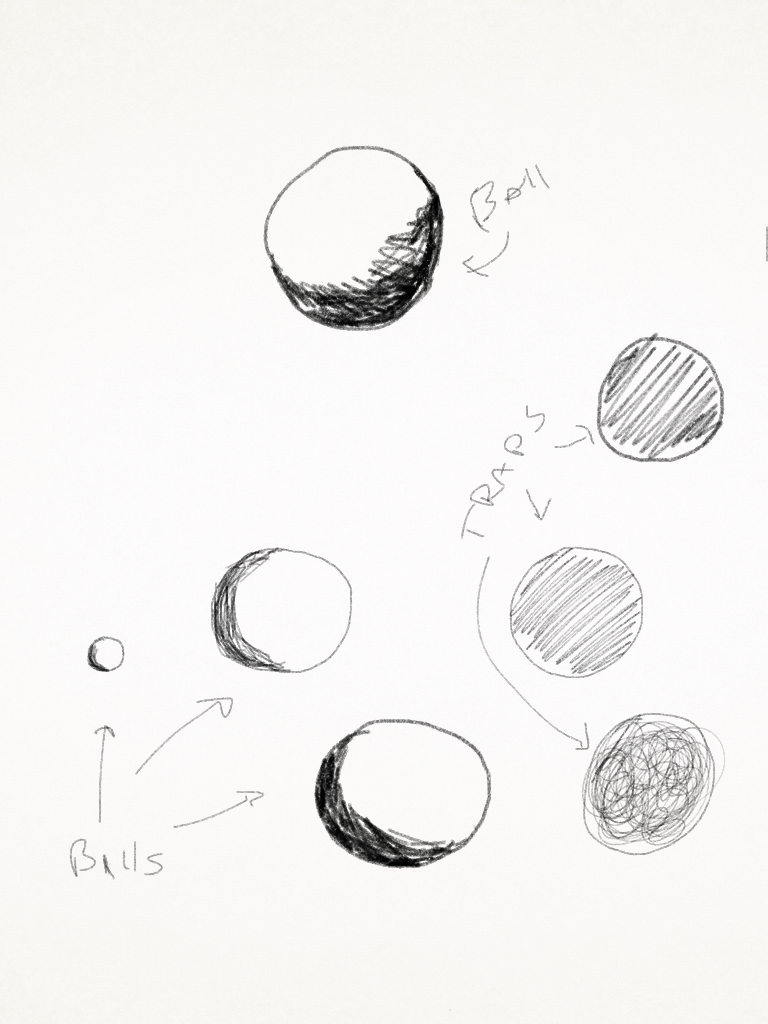 Ball
TRAPS
Balls